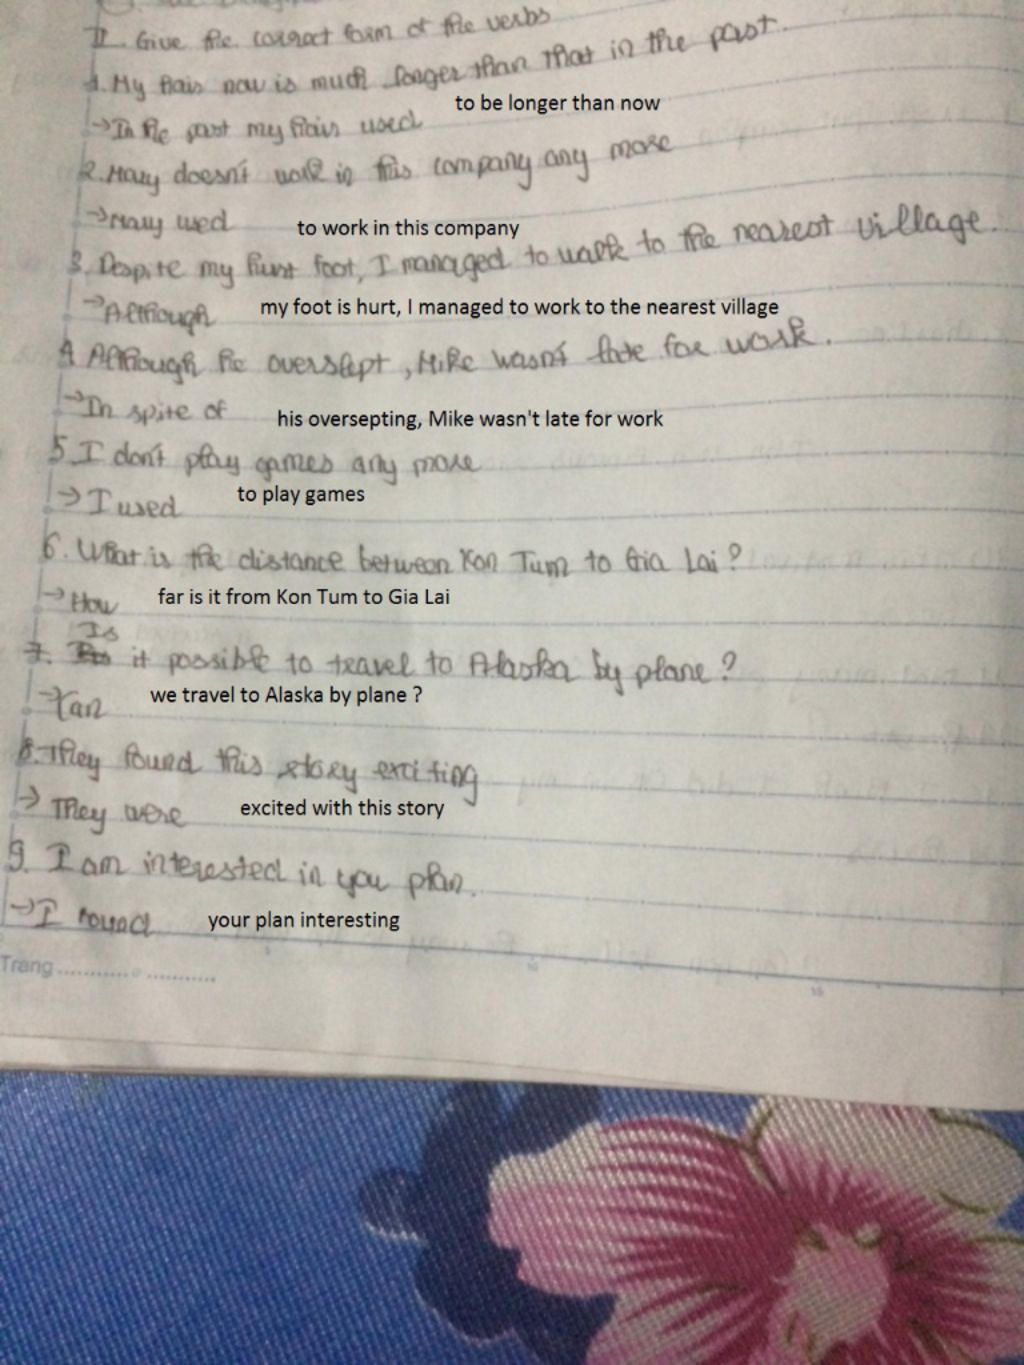 II. Give the correct form of the verbs
1. My hair now is much longer than that in the past.
to be longer than now
→ In the past my hair used
2. Mary doesn't work in this company any more
→ Mary used to work in this company
3. Despite my hurt foot, I managed to walk to the nearest village.
→ Although my foot is hurt, I managed to work to the nearest village
4. Although he overslept, Mike wasn't late for work.
→ In spite of his oversepting, Mike wasn't late for work
5. I don't play games any more
→ I used to play games
6. What is the distance between Kon Tum to Gia Lai?
→ How far is it from Kon Tum to Gia Lai
7. Is it possible to travel to Alaska by plane?
→ Can we travel to Alaska by plane ?
8. They found this story exciting
→ They were excited with this story
9. I am interested in you plan.
→ I found your plan interesting
Trang